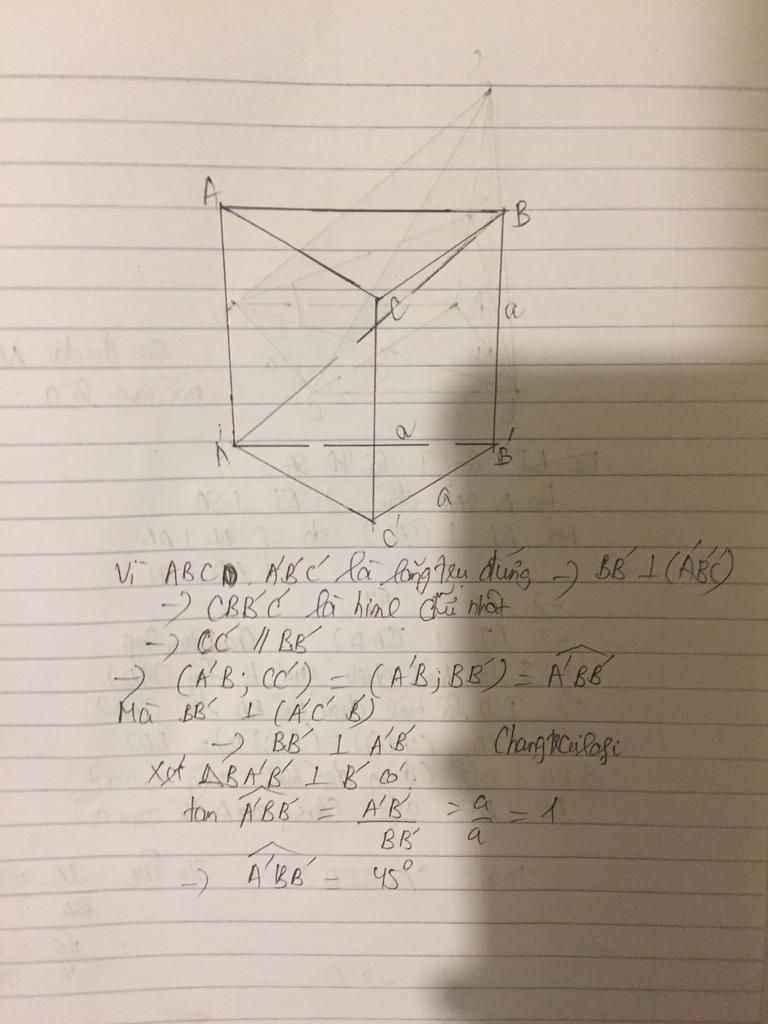 A
B
C
a
A'
a
B'
a
C'
Vì ABC A'B'C' là lăng trụ đứng → BB' ⊥ (A'B'C')
→ CBB'C' là hình chữ nhật
→ CC' // BB'
→ (A'B; CC') = (A'B; BB') = A'BB'
Mà BB' ⊥ (A'C'B')
→ BB' ⊥ A'B'
Xét ΔBA'B' ⊥ B' có:
tan A'BB' = A'B'/BB' = a/a = 1
→ A'BB' = 45°